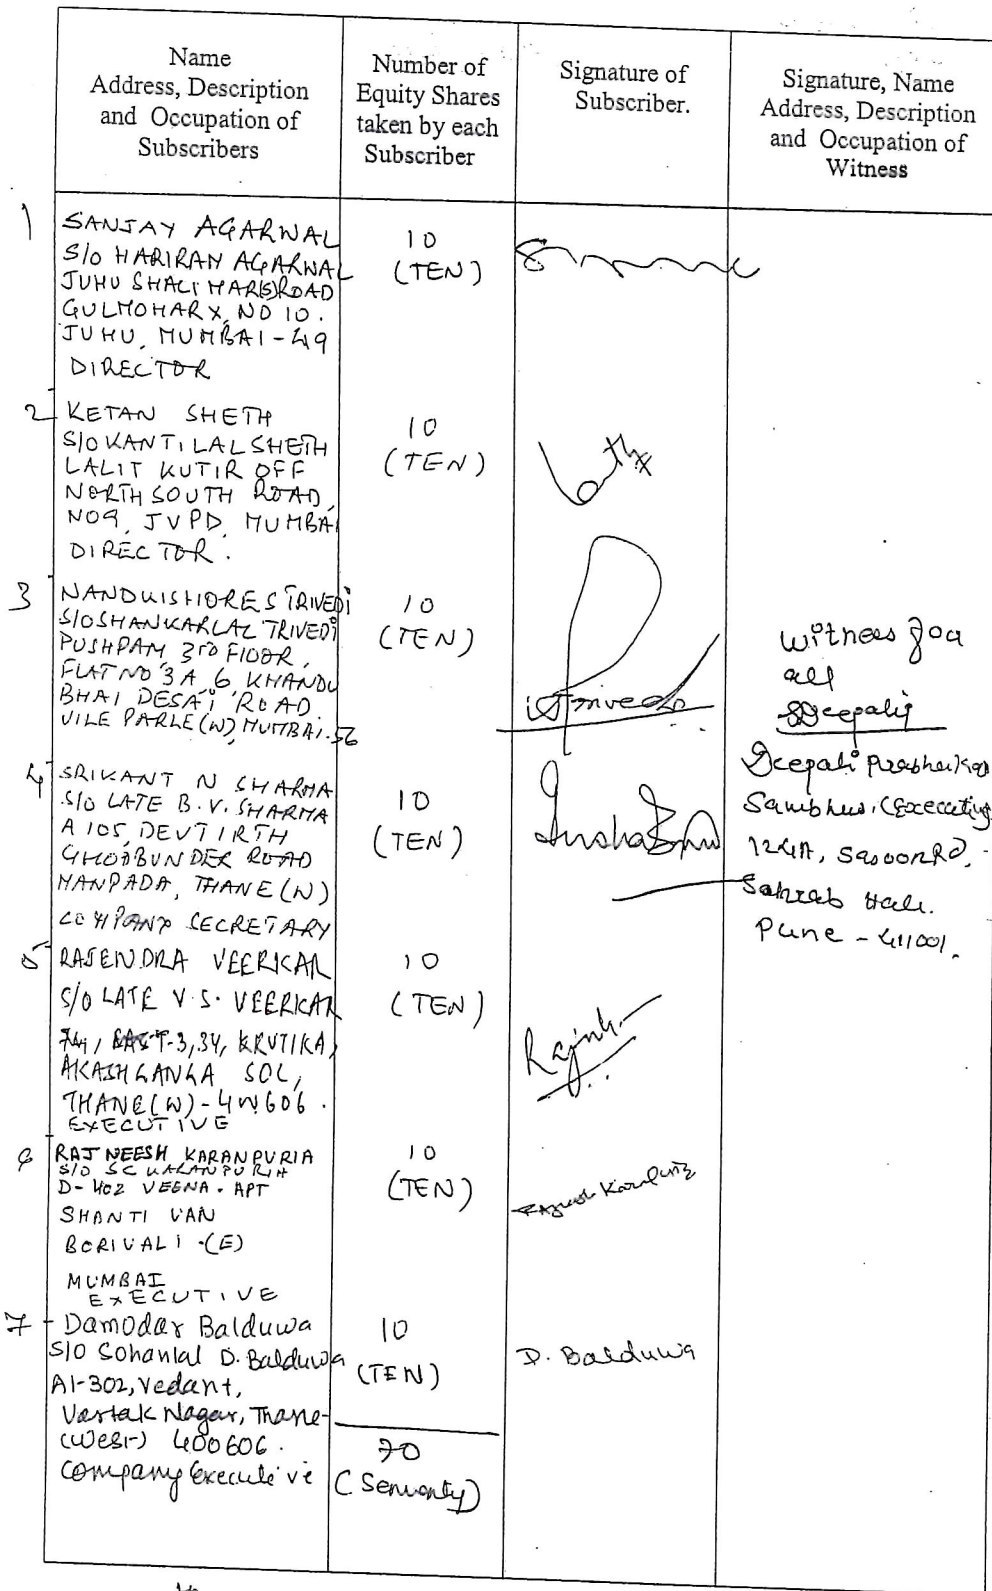 Name
Address, Description
and Occupation of
Subscribers
Number of
Equity Shares
taken by each
Subscriber
Signature of
Subscriber.
Signature, Name
Address, Description
and Occupation of
Witness
1
SANJAY AGARWAL
S/O HARIRAM AGARWAL
JUHU SHALIMAR(S)ROAD
GULMOHAR X, NO 10.
JUHU, MUMBAI - 49
DIRECTOR
10
(TEN)
2
KETAN SHETH
S/O KANTILAL SHETH
LALIT KUTIR OFF
NORTH SOUTH ROAD,
NO9, JVPD, MUMBAI
DIRECTOR.
10
(TEN)
3
NANDKISHORE S TRIVEDI
S/O SHANKARLAL TRIVEDI
PUSHPAM 3rd FLOOR,
FLAT NO 3A 6 KHANDU
BHAI DESAI ROAD
VILE PARLE(W), MUMBAI.56
10
(TEN)
Trivedi
witness for
all
Deepali
Deepali Prabhakar
Sambhus. (Executive)
124A, Sasoon Rd,
Sahreb Hall.
Pune - 411001.
4
SRIKANT N SHARMA
S/O LATE B. V. SHARMA
A 105, DEVTIRTH
GHODBUNDER ROAD
MANPADA, THANE (W)
COMPANY SECRETARY
10
(TEN)
5
RAJENDRA VEERKAR
S/O LATE V. S. VEERKAR
74, -3,34, KRUTIKA,
AKASHGANGA SOC,
THANE(W) - 400606.
EXECUTIVE
10
(TEN)
6
RAJNEESH KARANPURIA
S/O SC KARANPURIA
D- 402 VEENA. APT
SHANTI VAN
BORIVALI .(E)
MUMBAI
EXECUTIVE
10
(TEN)
7
Damodar Balduwa
S/O Sohanlal D. Balduwa
A1-302, Vedant,
Vartak Nagar, Thane-
(West) 400606.
Company Executive
10
(TEN)
D. Balduwa
70
(Sewenty)